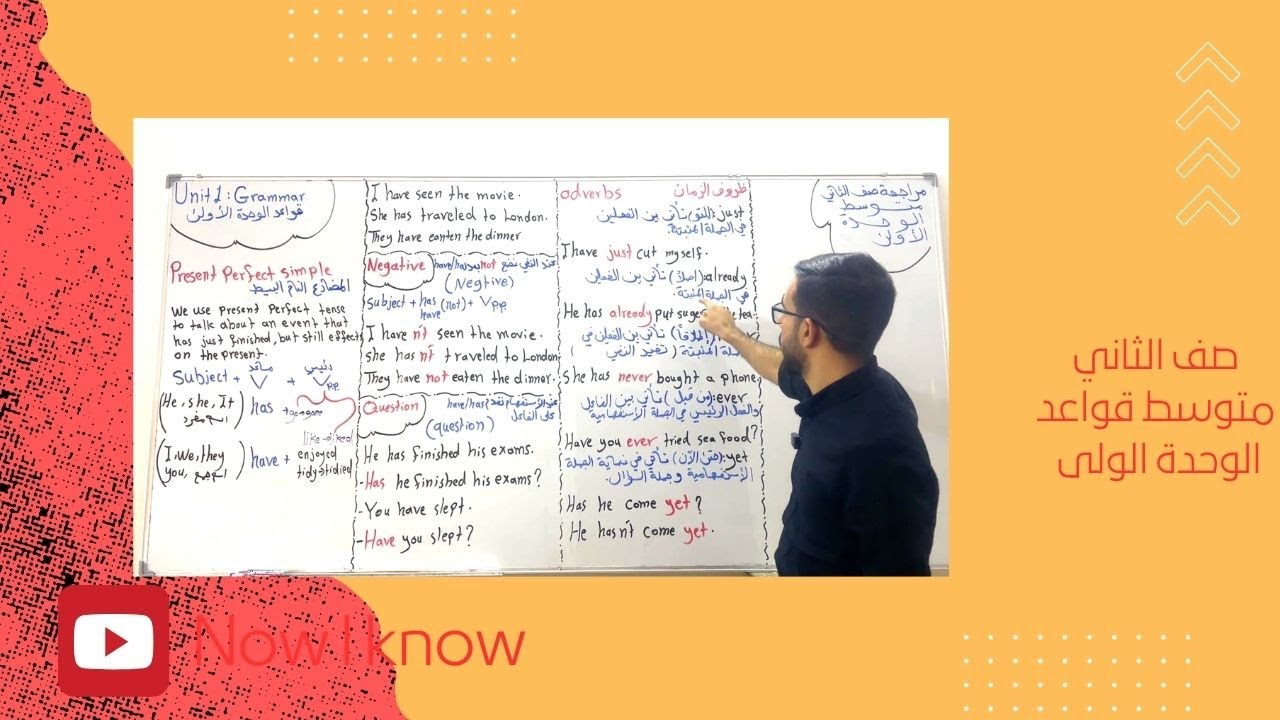 Unit 1: Grammar
قواعد الوحدة الأولى
Present Perfect simple
المضارع التام البسيط
We use present perfect tense
to talk about an event that
has just finished, but still effects
on the present.
مساعد رئيسي
Subject + V + Vpp
(He, she, It المفرد) has + go→gone
like→liked
(I, we, they you, الجمع) have + enjoyed
tidy→tidied
I have seen the movie.
She has traveled to London.
They have eanten the dinner
Negative
عند النفي نضع not بعد have/has
(Negtive)
Subject + has have (not) + Vpp
I have n't seen the movie.
she has n't traveled to London
They have not eaten the dinner.
Question
عند الأستفهام نقدم (have/has
على الفاعل
(question)
He has finished his exams.
- Has he finished his exams?
- You have slept.
- Have you slept?
adverbs ظروف الزمان
just: (للتو) تأتي بين الفعلين
في الجملة المثبتة.
I have just cut myself.
already: (اصلاً) تأتي بين الفعلين
في الجملة المثبتة.
He has already put suger tea.
تأتي بين الفعلين في
المثبتة (تفيد النفي)
She has never bought a phone
ever: (من قبل) تأتي بين الفاعل
والفعل الرئيسي في الجملة الأستفهامية
Have you ever tried sea food?
yet: (حتى الآن) تأتي في نهاية الجملة
الأستفهامية وجملة السؤال.
Has he come yet?
He hasn't come yet.
مراجعة صف الثاني
متوسط
الوحدة
الأولى
صف الثاني
متوسط قواعد
الوحدة الولى
Now I know